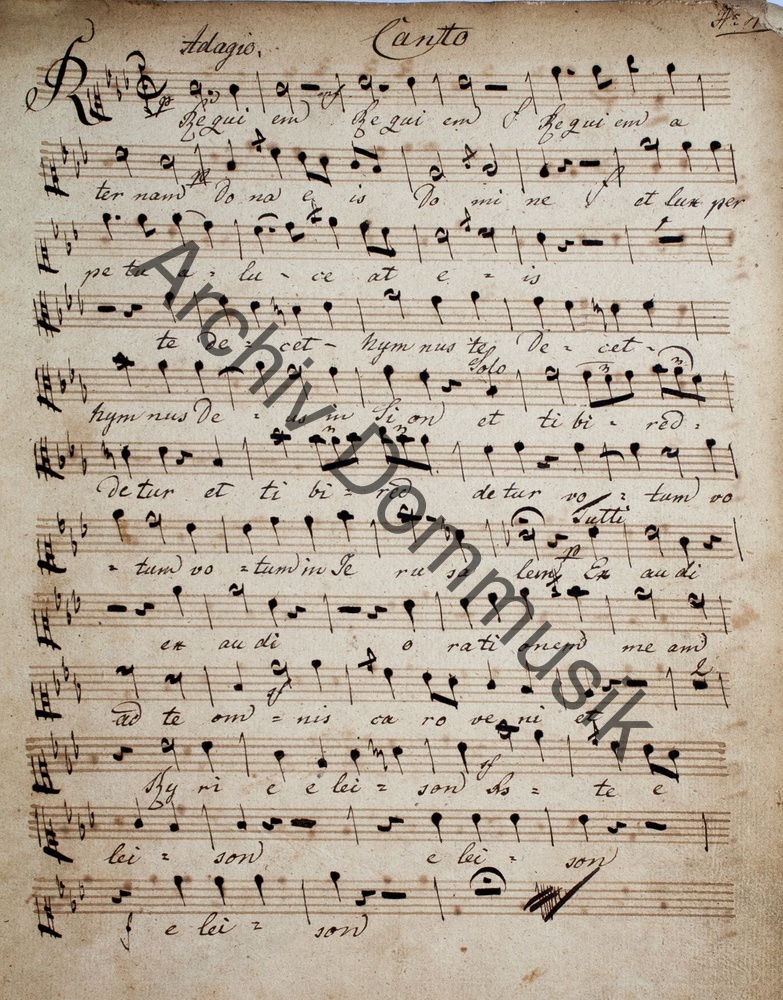 Adagio. Canto
Requi em Requi em f Requi em a
ter nam Do na e is Do mi ne f et lux per
pe tu a - lu - ce at e - is
te de - cet - hym nus te De - cet -
Solo
hym nus De - us in Si on et ti bi - red -
de tur et ti bi - red de tur vo - tum vo
Tutti
- tum vo - tum in Je ru sa lem Ex au di
ex au di o rati onem me am
2
ad te om - nis ca ro ve ni et
Ky ri e e lei - son - te e
lei - son e lei - son
f e lei - son
Archiv Dommusik